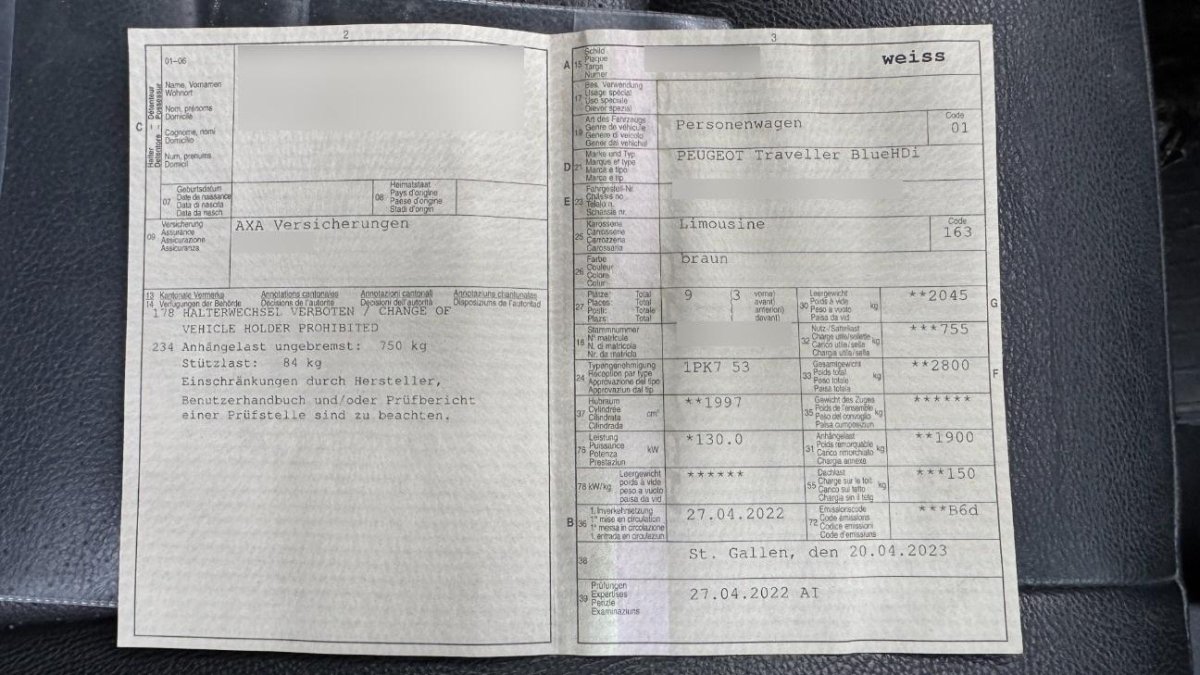 2
01-06
Halter - Détenteur
Detentore - Possessur
C
Name, Vornamen
Wohnort
Nom, prénoms
Domicile
Cognome, nomi
Domicilio
Num, prenums
Domicil
07
Geburtsdatum
Date de naissance
Data di nascita
Data da nasch.
08
Heimatstaat
Pays d'origine
Paese d'origine
Stadi d'origin
09
Versicherung
Assurance
Assicurazione
Assicuranza
AXA Versicherungen
13 Kantonale Vermerke Annotations cantonales Annotazioni cantonali Annotaziuns chantunalas
14 Verfügungen der Behörde Décisions de l'autorité Decisioni dell'autorità Disposiziuns da l'autoritad
178 HALTERWECHSEL VERBOTEN / CHANGE OF
VEHICLE HOLDER PROHIBITED
234 Anhängelast ungebremst: 750 kg
Stützlast: 84 kg
Einschränkungen durch Hersteller,
Benutzerhandbuch und/oder Prüfbericht
einer Prüfstelle sind zu beachten.
3
A
15
Schild
Plaque
Targa
Numer
weiss
17
Bes. Verwendung
Usage spécial
Uso speciale
Diever spezial
19
Art des Fahrzeugs
Genre de véhicule
Genere di veicolo
Gener dal vehichel
Personenwagen
Code
01
D
21
Marke und Typ
Marque et type
Marca e tipo
Marca e tip
PEUGEOT Traveller BlueHDi
E
23
Fahrgestell-Nr.
Châssis no
Telaio n.
Schassis nr.
25
Karosserie
Carrosserie
Carrozzeria
Carossaria
Limousine
Code
163
26
Farbe
Couleur
Colore
Colur
braun
27
Plätze: Total
Places: Total
Posti: Totale
Plazs: Total
9 (3 vorne)
( avant)
( anteriori)
( davant)
30
Leergewicht
Poids à vide
Peso a vuoto
Paisa da vid
kg
**2045
G
18
Stammnummer
N° matricule
N. di matricola
Nr. da matricla
32
Nutz-/Sattellast
Charge utile/sellette
Carico utile/sella
Chargia utila/sella
kg
***755
24
Typengenehmigung
Réception par type
Approvazione del tipo
Approvaziun dal tip
1PK7 53
33
Gesamtgewicht
Poids total
Peso totale
Paisa totala
kg
**2800
F
37
Hubraum
Cylindrée
Cilindrata
Cilindrada
cm³
**1997
35
Gewicht des Zuges
Poids de l'ensemble
Peso del convoglio
Paisa cumposiziun
kg
******
76
Leistung
Puissance
Potenza
Prestaziun
kW
*130.0
31
Anhängelast
Poids remorquable
Carico rimorchiato
Chargia annexa
kg
**1900
78 kW/kg
Leergewicht
poids à vide
peso a vuoto
paisa da vid
******
55
Dachlast
Charge sur le toit
Carico sul tetto
Chargia sin il tetg
kg
***150
B
36
1. Inverkehrsetzung
1re mise en circulation
1a messa in circolazione
1. entrada en circulaziun
27.04.2022
72
Emissionscode
Code émissions
Codice emissioni
Code d'emissiuns
***B6d
38
St. Gallen, den 20.04.2023
39
Prüfungen
Expertises
Perizie
Examinaziuns
27.04.2022 AI